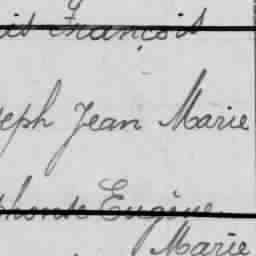 François
eph Jean Marie
phonse Eugène
Marie